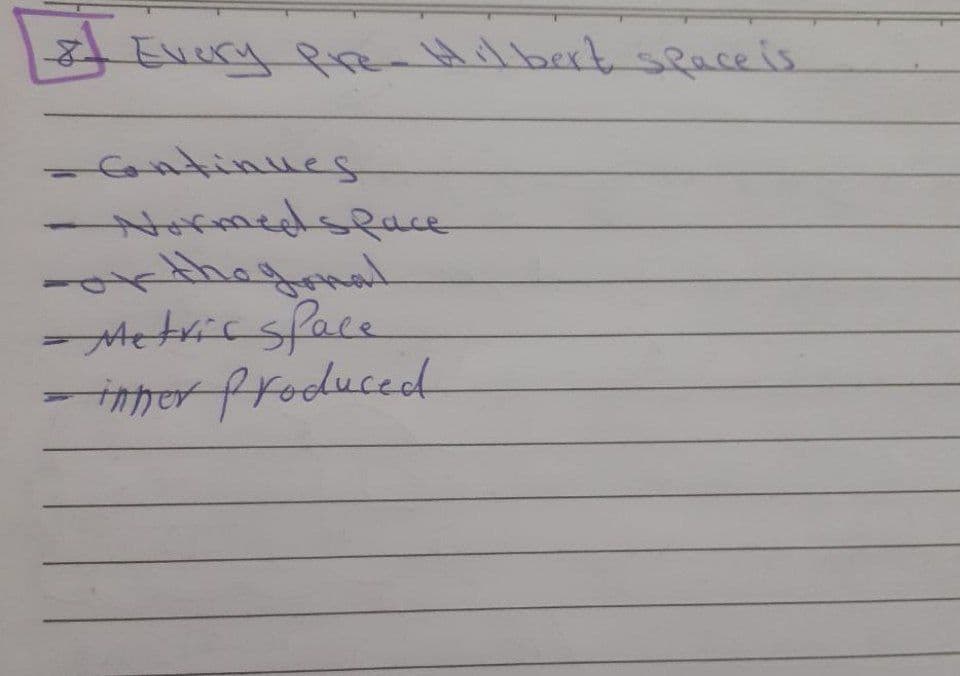 8- Every Pre-Hilbert space is
- Continues
- Normed space
- orthogonal
- Metric space
- inner produced